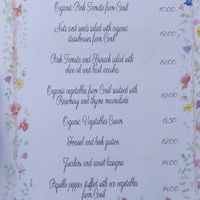 Organic Pink Tomato from Coril 10.00
Nuts and seeds salad with organic
strawberries from Coril 12.00
Pink Tomato and Spinach salad with
olive oil and basil 12.00
Organic vegetables from Coril sauteed with
Rosemary and thyme marinade 12.00
Organic Vegetables Cream 6.50
Fennel and leek gratten 12.00
Zucchini and carrot lasagna 14.00
Piquillo pepper stuffed with eco vegetables
from Coril 14.00